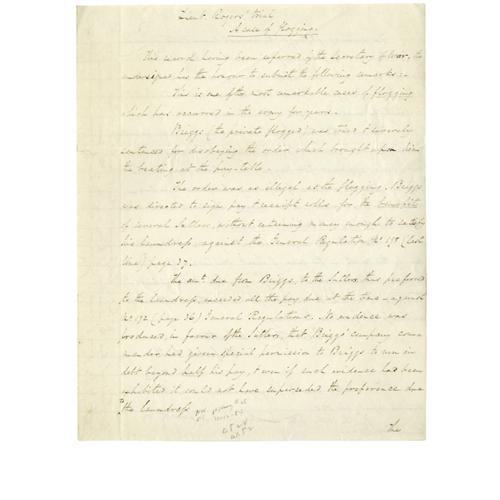 Lieut. Rogers' trial
A case of Flogging.
This record having been referred by the Secretary of War, the
undersigned has the honour to submit the following remarks:-
This is one of the most remarkable cases of flogging
which has occurred in the army for years.
Briggs (the private flogged) was tried & severely
sentenced for disobeying the order which brought upon him
the beating at the pay-table.
The order was as illegal as the flogging. Briggs
was directed to sign pay & receipt rolls for the benefit
of several Sutlers, without retaining money enough to satisfy
his laundress, against the General Regulation, No. 198 (last
line) page 37.
The amt. due from Briggs, to the Sutlers, thus preferred
to the laundress, exceeded all the pay due at the time - against
No. 192 (page 36) General Regulations. No evidence was
produced in favour of the Sutlers, that Briggs' company com-
mander had given special permission to Briggs to run in
debt beyond half his pay, & even if such evidence had been
exhibited it could not have superseded the preference due
to the laundress
The